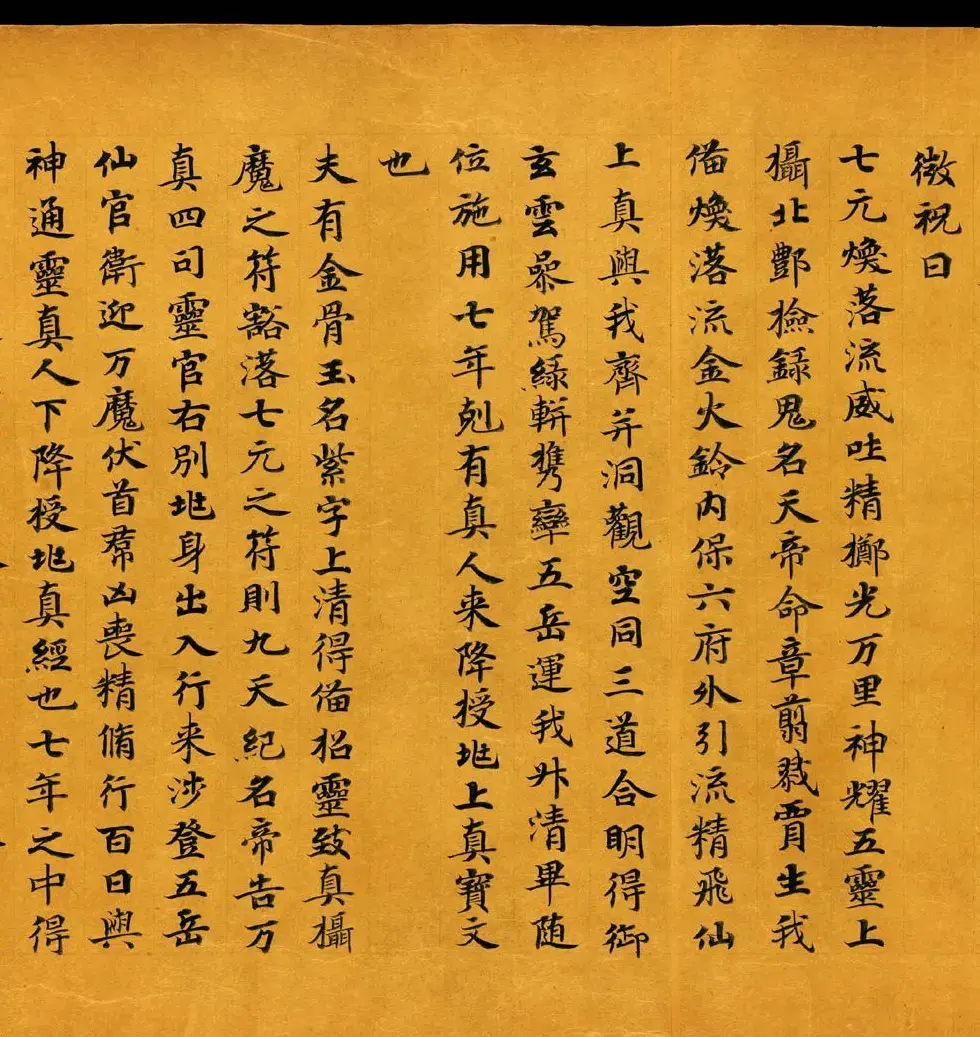 微祝曰
七元煥落流威吐精擲光万里神耀五靈上
攝北酆撿録鬼名天帝命章翦戮賈生我
俻煥落流金火鈴内保六府外引流精飛仙
上真與我齊并洞觀空同三道合明得御
玄雲㬅駕緑軿攜㝈五岳運我升清畢随
位施用七年剋有真人来降授地上真寳文
也
夫有金骨玉名紫字上清得俻招靈致真攝
魔之符豁落七元之符則九天紀名帝告万
真四司靈官右別地身出入行来涉登五岳
仙官衛迎万魔伏首群凶喪精脩行百日與
神通靈真人下降授地真經也七年之中得